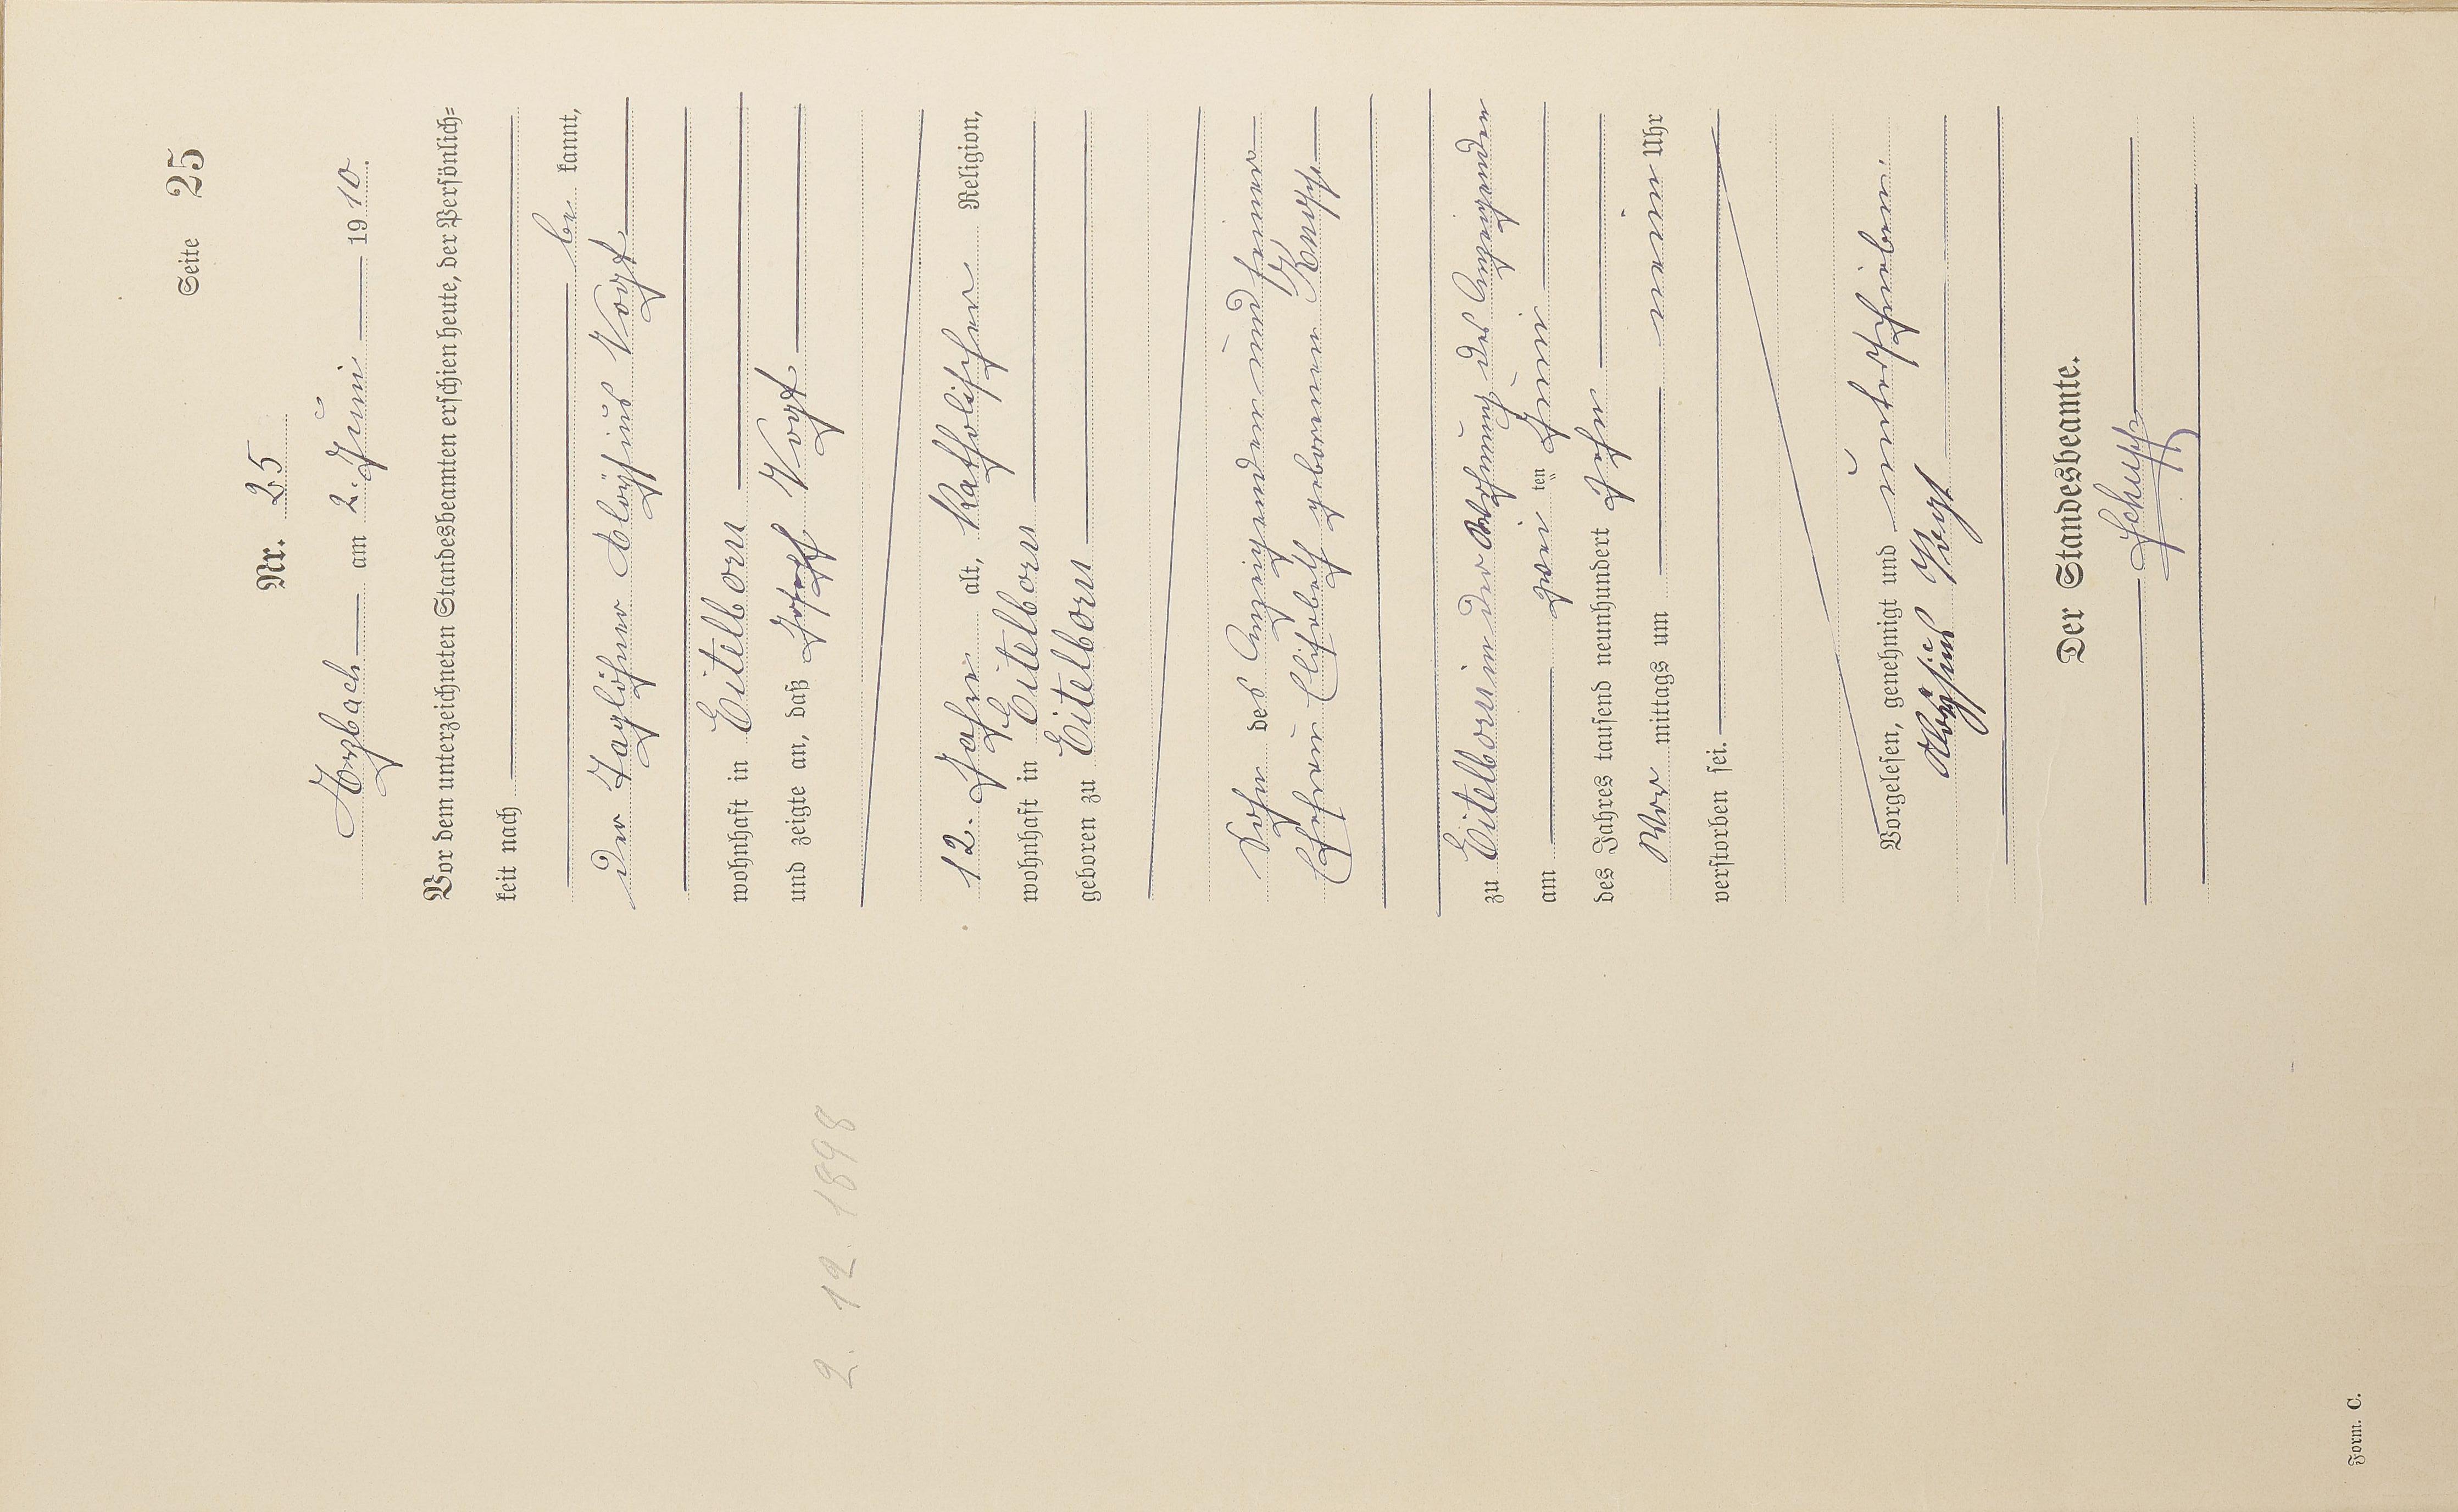 Seite 25
Nr. 25
Arzbach am 2. Juni 1910.
Vor dem unterzeichneten Standesbeamten erschien heute, der Persönlich=
keit nach
be kannt,
der Taglöhner Aloÿsius Vogt
wohnhaft in Eitelborn
und zeigte an, daß Josef Vogt
12. Jahre alt, katholischer Religion,
wohnhaft in Eitelborn
geboren zu Eitelborn
Sohn des Anzeigenden und seiner
Ehefrau Elisabeth geborenen
zu Eitelborn in der Wohnung des Anzeigenden
am zwei ten Juni
des Jahres tausend neunhundert zehn
Vor mittags um neun Uhr
verstorben sei.
Vorgelesen, genehmigt und unterschrieben.
Aloÿsius Vogt
Der Standesbeamte.
Schupp
2. 12. 1898
Form. C.